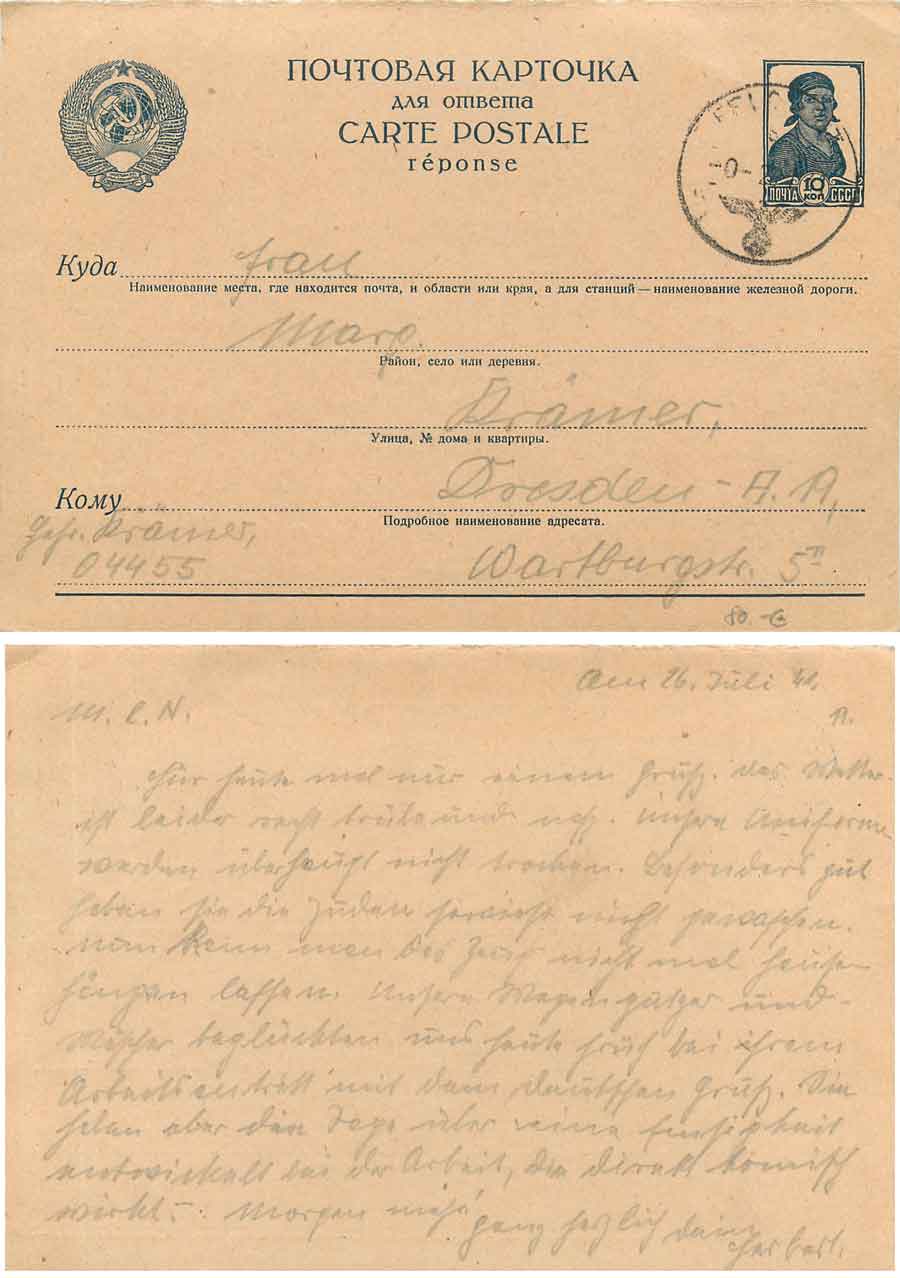 ПОЧТОВАЯ КАРТОЧКА
для ответа
CARTE POSTALE
réponse
ПОЧТА 10 КОП СССР
Куда Frau
Наименование места, где находится почта, и области или края, а для станций — наименование железной дороги.
Marg.
Район, село или деревня.
Krämer,
Улица, № дома и квартиры.
Кому Dresden - A.
Подробное наименование адресата.
Gefr. Krämer,
04455
Wartburgstr. 5
80.-
Am 26. Juli 41.
M. l. N.
Für heute mal nur einen Gruß. Das Wetter
ist leider recht trübe und naß. Unsere Uniformen
werden überhaupt nicht trocken. Besonders gut
haben sie die Juden sowieso nicht gewaschen.
Nun kann man das Zeug nicht mal
hängen lassen. Unsere Wagenputzer und
Wäscher beglückten uns heute früh bei ihrem
Arbeitsantritt mit dem deutschen Gruß. Sie
haben aber den Tag über eine Emsigkeit
entwickelt bei der Arbeit, die direkt komisch
wirkt. Morgen mehr
ganz herzlich dein
Herbert.